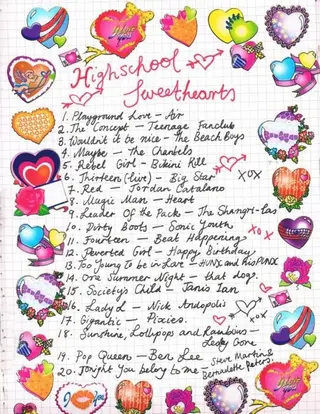 Highschool
Sweethearts
1. Playground Love – Air
2. The Concept – Teenage Fanclub
3. Wouldn't it be nice – The Beach Boys
4. Maybe – The Chantels
5. Rebel Girl – Bikini Kill
6. Thirteen (live) – Big Star
XOX
7. Red – Jordan Catalano
8. Magic Man – Heart
9. Leader Of the Pack – The Shangri-las
10. Dirty Boots – Sonic Youth
XOX
11. Fourteen – Beat Happening
12. Perverted Girl – Happy Birthday
13. Too Young to be in Love – HUNX and his PUNX
14. One Summer Night – that dog.
15. Society's Child – Janis Ian
16. Lady L – Nick Andopolis
17. Gigantic – Pixies
18. Sunshine, Lollipops and Rainbows –
Lesley Gore
19. Pop Queen – Ben Lee
20. Tonight You belong to me – Steve Martin &
Bernadette Peters
I You